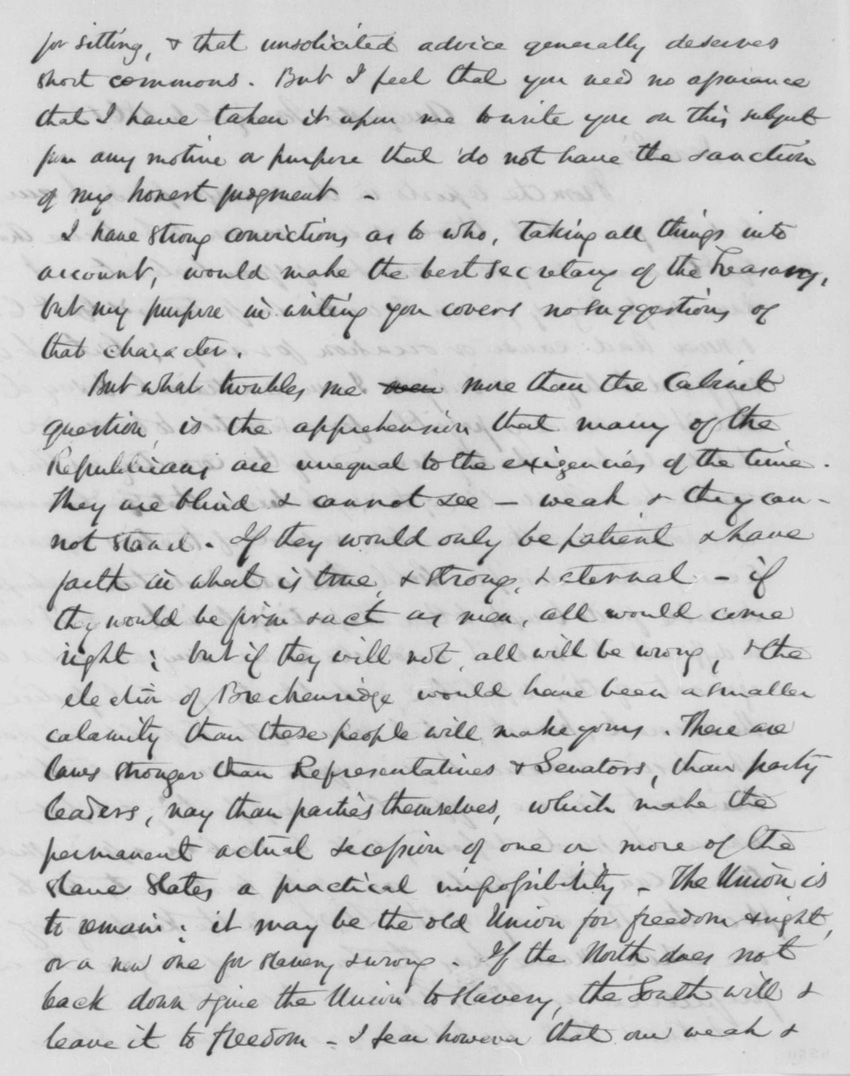 for sitting, & that unsolicited advice generally deserves
short commons. But I feel that you need no assurance
that I have taken it upon me to write you on this subject
from any motive or purpose that do not have the sanction
of my honest judgment -
I have strong convictions as to who, taking all things into
account, would make the best Secretary of the Treasury,
but my purpose in writing you covers no suggestions of
that character.
But what troubles me more than the Cabinet
question, is the apprehension that many of the
Republicans are unequal to the exigencies of the time.
They are blind & cannot see - weak & they can-
not stand. If they would only be patient & have
faith in what is true, & strong, & eternal - if
they would be firm & act as men, all would come
right; but if they will not, all will be wrong, & the
election of Breckenridge would have been a smaller
calamity than these people will make yours. There are
laws stronger than Representatives & Senators, than party
leaders, nay than parties themselves, which make the
permanent actual secession of one or more of the
slave States a practical impossibility. The Union is
to remain: it may be the old Union for freedom & right,
or a new one for slavery & wrong. If the North does not
back down & give the Union to slavery, the South will &
leave it to freedom - I fear however that our weak &